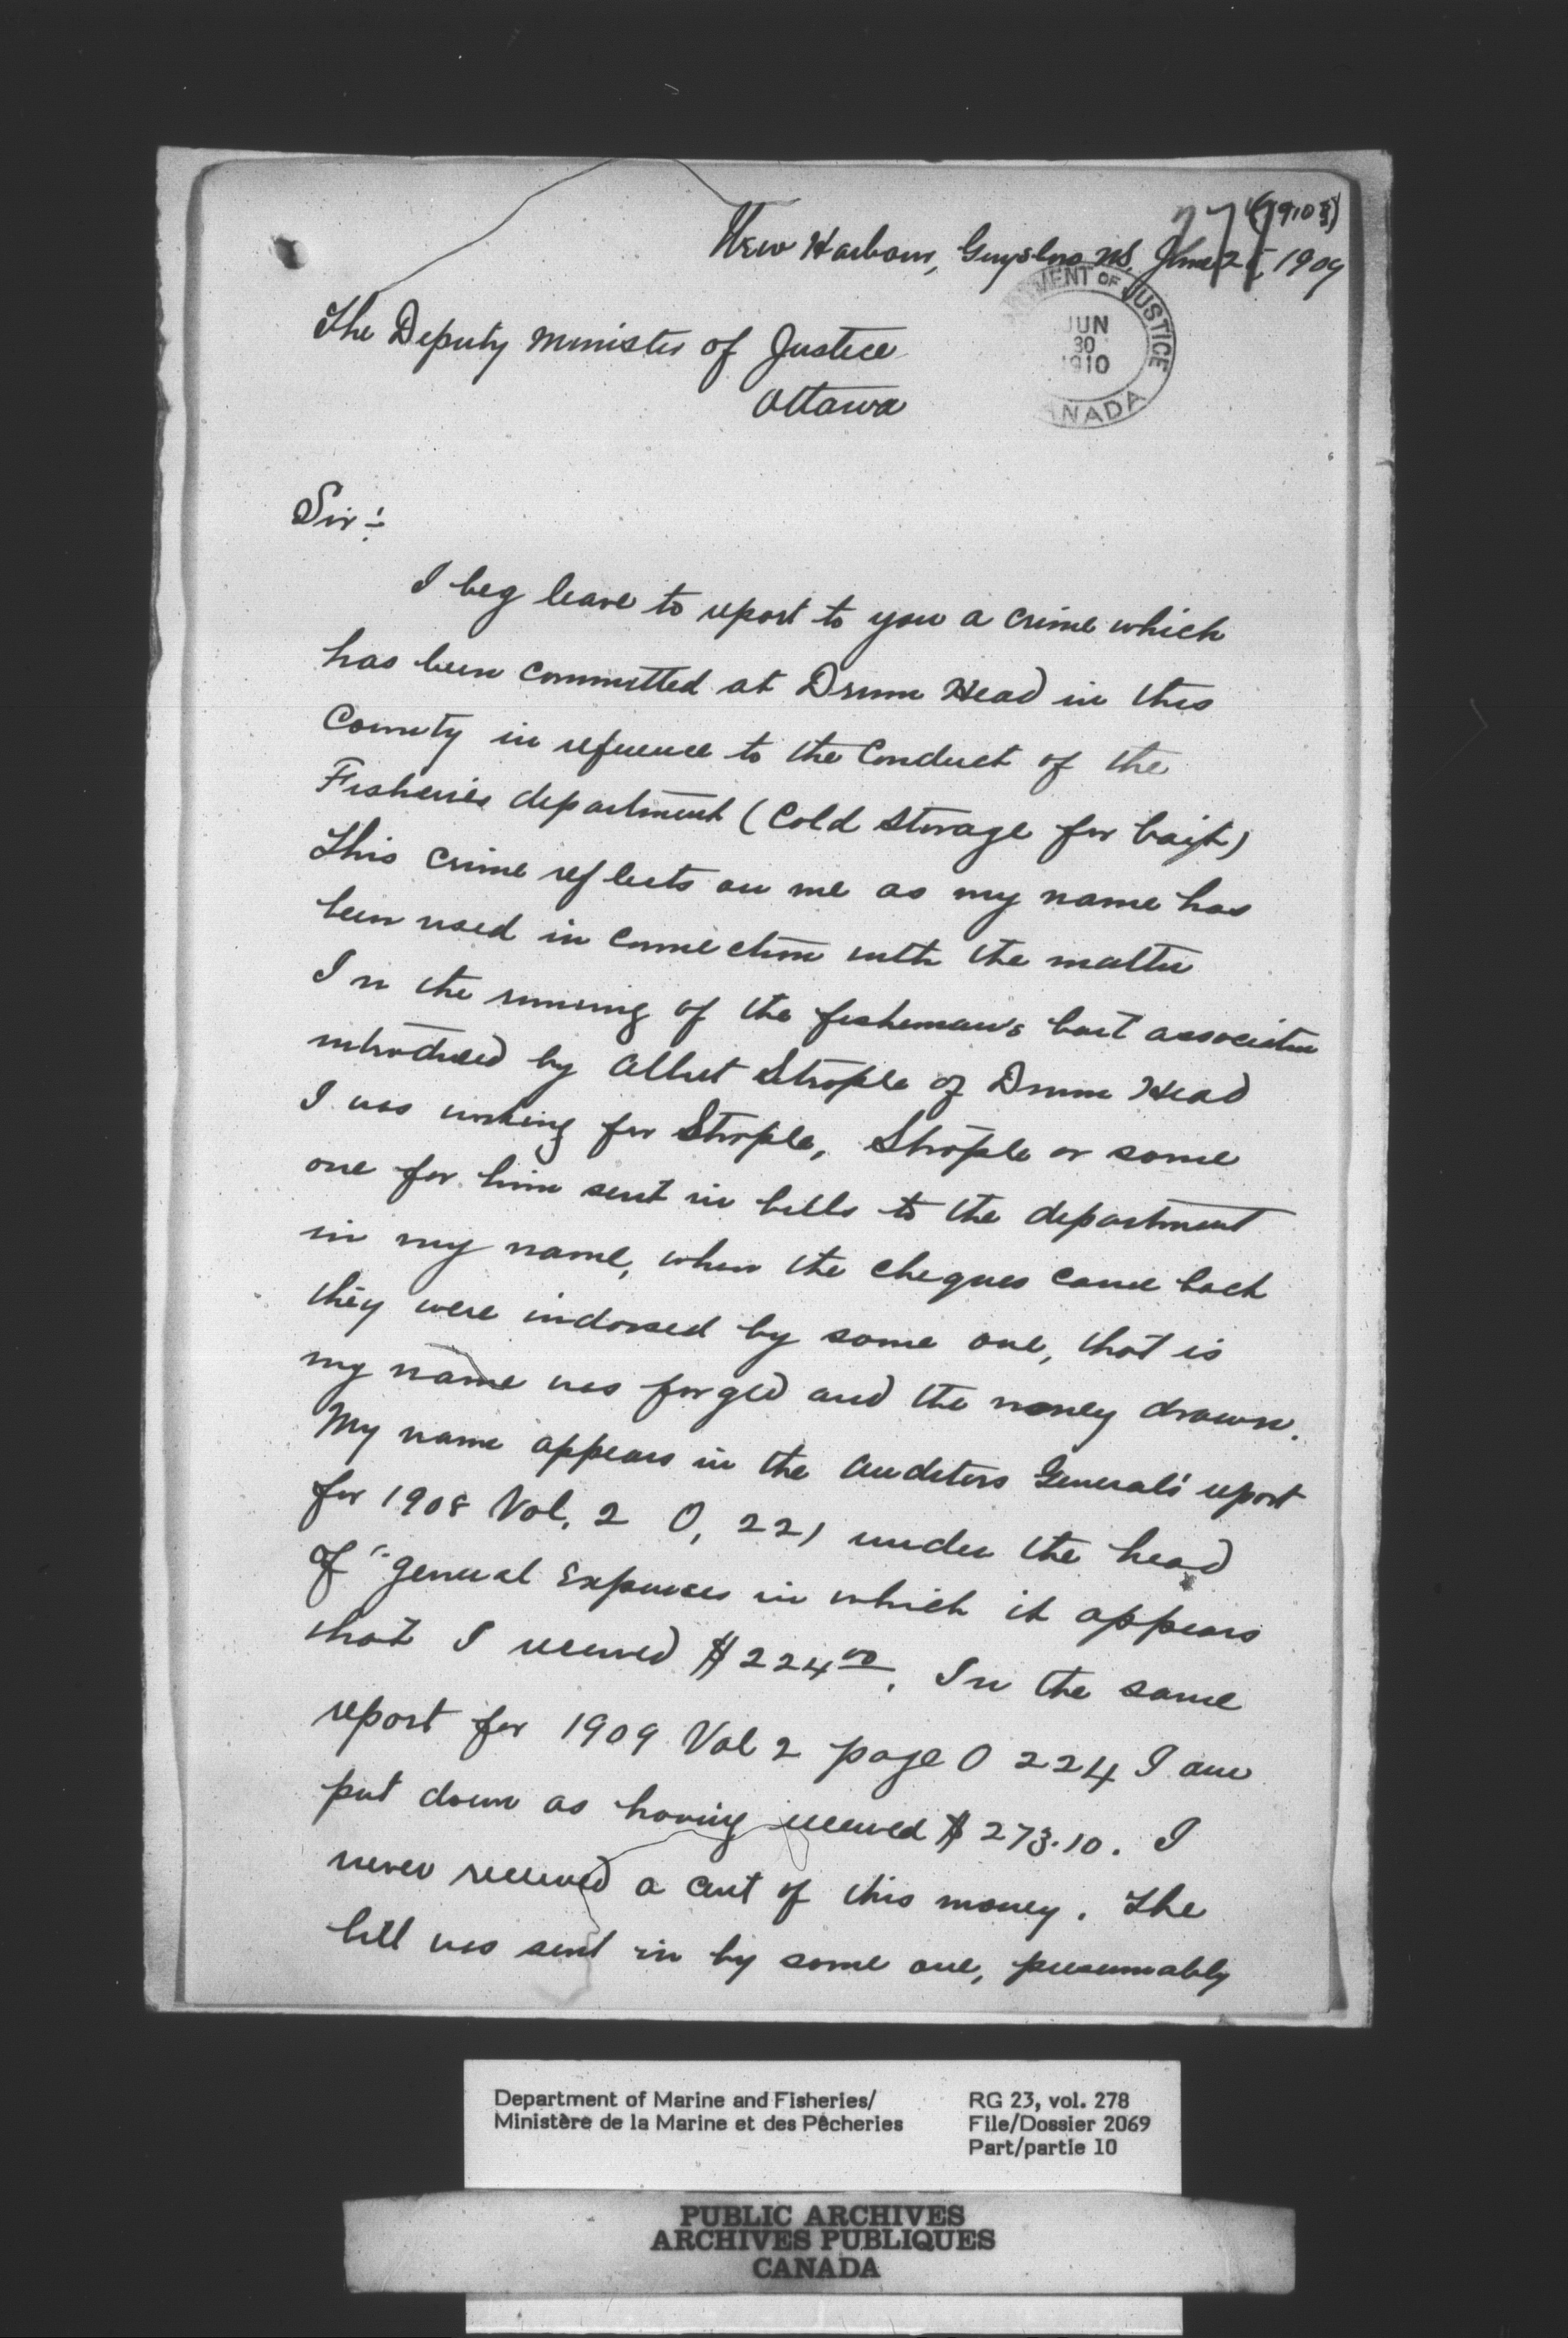 (1910?)
777
New Harbour, Guysboro NS, June 25 1909
DEPARTMENT OF JUSTICE
JUN
30
1910
CANADA
The Deputy Minister of Justice
Ottawa
Sir :-
I beg leave to report to you a crime which
has been committed at Drum Head in this
County in reference to the Conduct of the
Fisheries department (Cold storage for bait)
This crime reflects on me as my name has
been used in connection with the matter
In the running of the fisheman's bait association
introduced by Albert Strople of Drum Head
I was working for Strople, Strople or some
one for him sent in bills to the department
in my name, when the cheques came back
they were indorsed by some one, that is
my name was forged and the money drawn.
My name appears in the Auditors General's report
for 1908 Vol. 2 O, 221 under the head
of "general Expenses in which it appears
that I received $224.00. In the same
report for 1909 Vol 2 page O 224 I am
put down as having received $273.10. I
never received a cent of this money. The
bill was sent in by some one, presumably
Department of Marine and Fisheries/
Ministère de la Marine et des Pêcheries
RG 23, vol. 278
File/Dossier 2069
Part/partie 10
PUBLIC ARCHIVES
ARCHIVES PUBLIQUES
CANADA